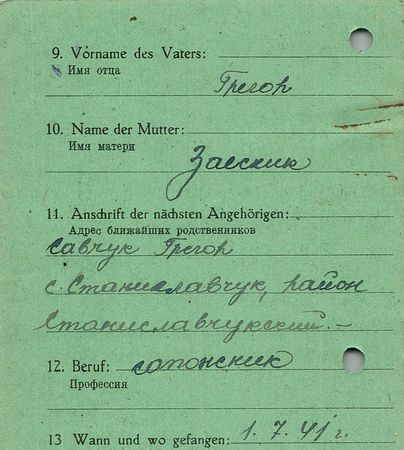 9. Vorname des Vaters:
Имя отца
Грегор
10. Name der Mutter:
Имя матери
Заескик
11. Anschrift der nächsten Angehörigen:
Адрес ближайших родственников
Савчук Грегор
с. Станиславчук, район
Станиславчукский.-
12. Beruf: сапожник
Профессия
13 Wann und wo gefangen: 1.7.41 г.